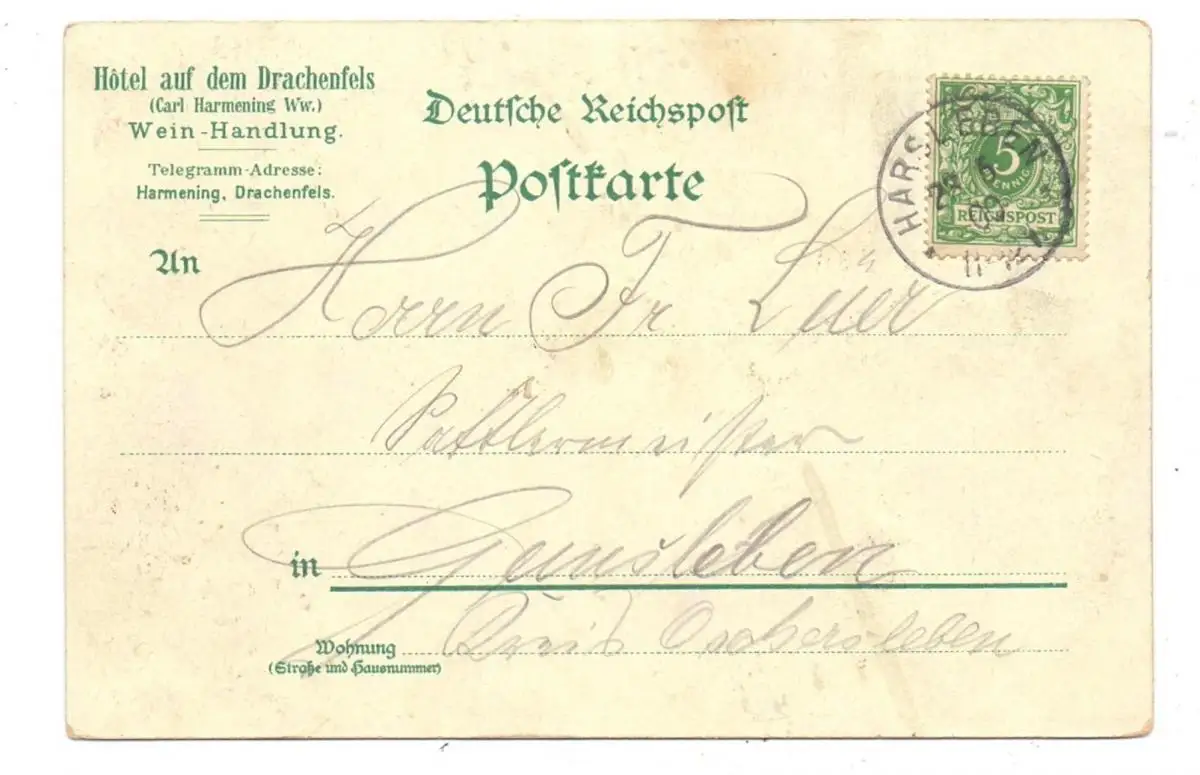 Hôtel auf dem Drachenfels
(Carl Harmening Ww.)
Wein-Handlung.
Telegramm-Adresse:
Harmening, Drachenfels.
Deutsche Reichspost
Postkarte
5
PFENNIG
REICHSPOST
HARSLEBEN
An Herrn Fr Lüer
Sattlermeister
in Gunsleben
Wohnung Kreis Oschersleben
(Straße und Hausnummer)